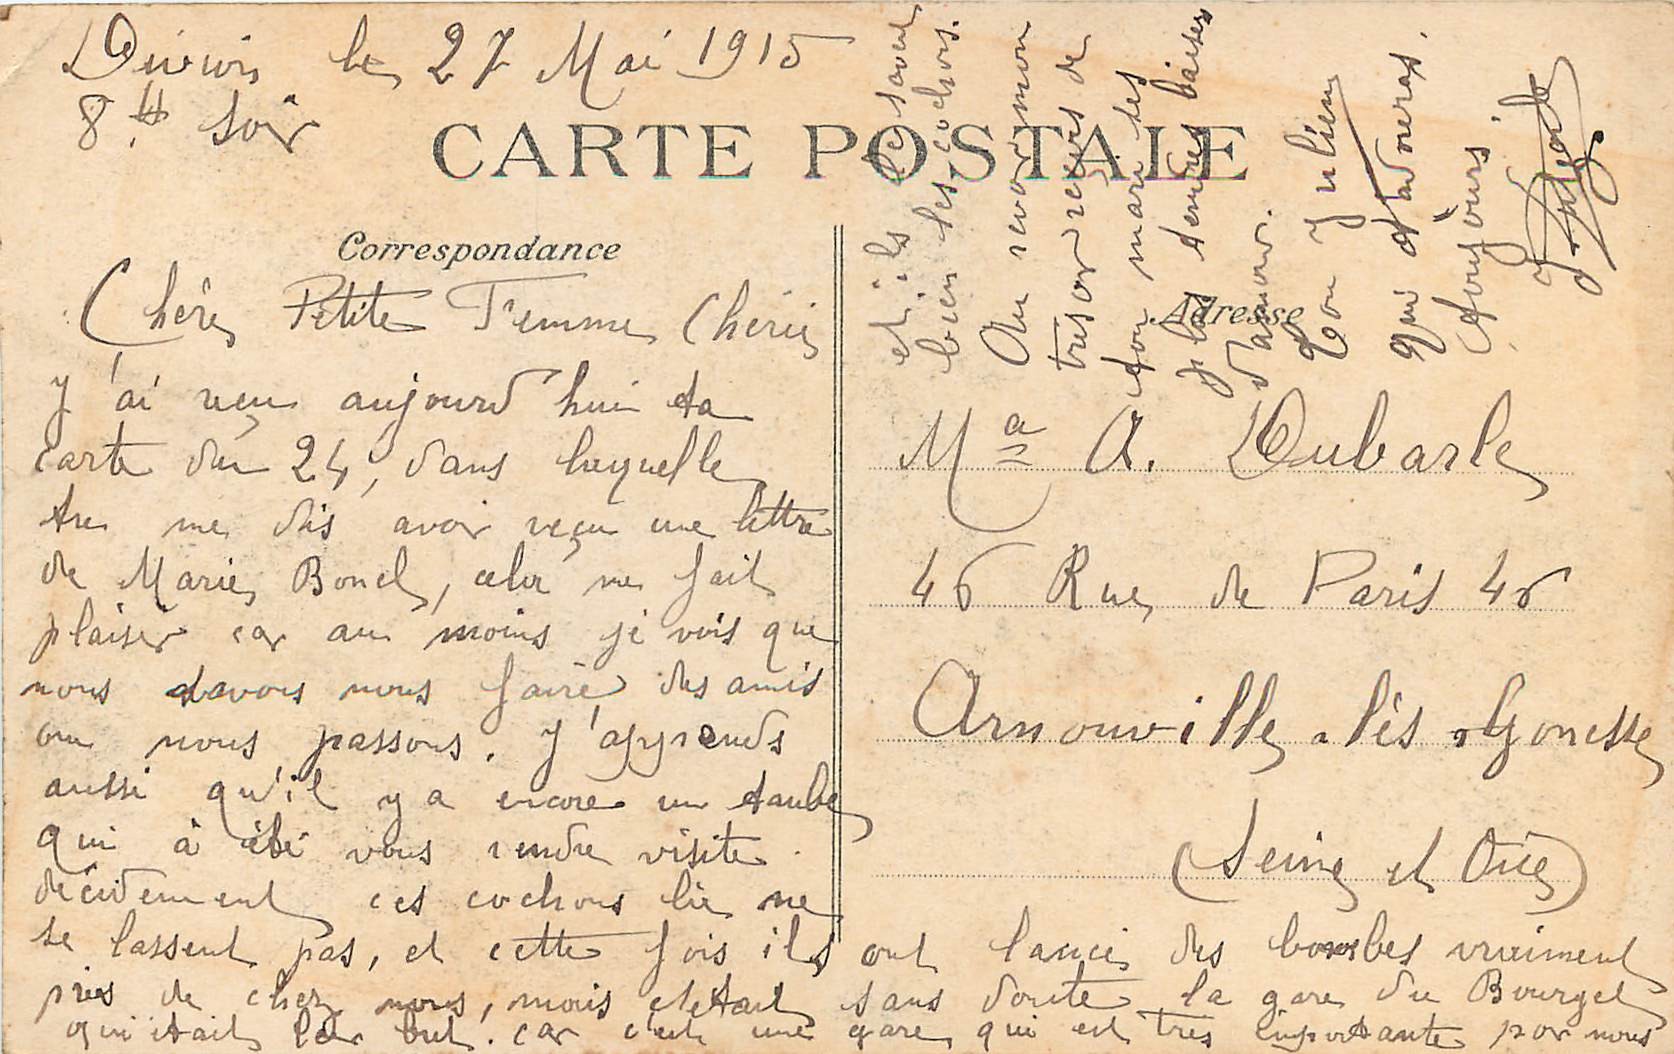 Divion le 27 Mai 1915
8H soir
CARTE POSTALE
Correspondance
Chère Petite Femme Chérie
J'ai reçu aujourd'hui ta
carte du 24, dans laquelle
tu me dis avoir reçu une lettre
de Marie Bonel, cela me fait
plaisir car au moins je vois que
nous savons nous faire des amis
ou nous passons. J'apprends
aussi qu'il y a encore un taube
qui à été vous rendre visite.
décidement ces cochons là ne
se lassent pas, et cette fois ils ont lancé des bombes vraiment
près de chez nous, mais c'etait sans doute la gare du Bourget
qui était leur but. car c'est une gare qui est très importante por nous
et ils le savent
bien les cochons.
Au revoir mon
tresor reçois de
ton mari ses
plus tendres baisers
d'amour.
Ton Julien
qui t'adorera
toujours.
Adresse
Ma A. Dubarle
46 Rue de Paris 46
Arnouville-lès-Gonesse
(Seine et Oise)